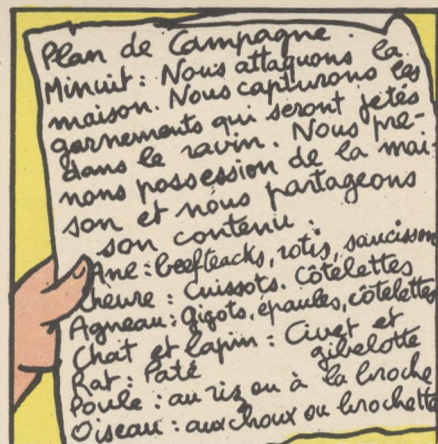 Plan de Campagne.
Minuit : Nous attaquons la
maison. Nous capturons les
garnements qui seront jetés
dans le ravin. Nous pre-
nons possession de la mai-
son et nous partageons
son contenu :
Ane : beefteacks, rotis, saucisson
Chevre : Cuissots. Côtelettes
Agneau : gigots, épaules, côtelettes
Chat et lapin : Civet et
gibelotte
Rat : Paté
Poule : au riz ou à la broche
Oiseau : aux choux ou brochette